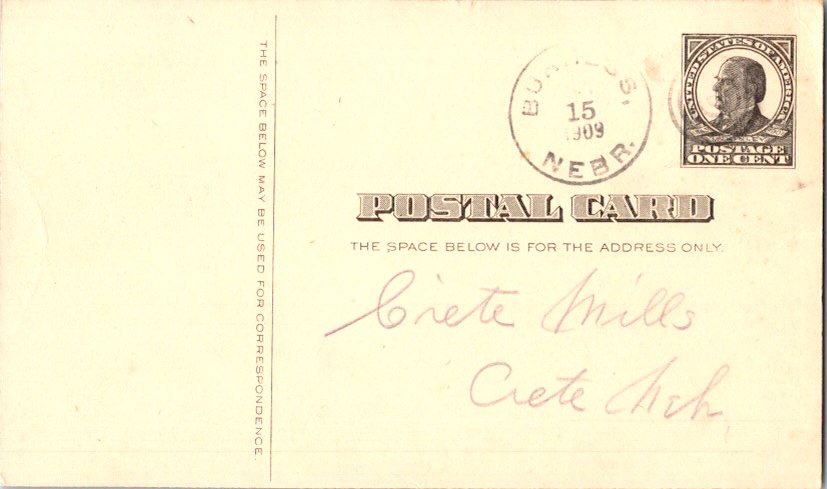 THE SPACE BELOW MAY BE USED FOR CORRESPONDENCE.
15
1909
NEBR.
UNITED STATES OF AMERICA
POSTAGE
ONE CENT
POSTAL CARD
THE SPACE BELOW IS FOR THE ADDRESS ONLY.
Crete Mills
Crete Neb.